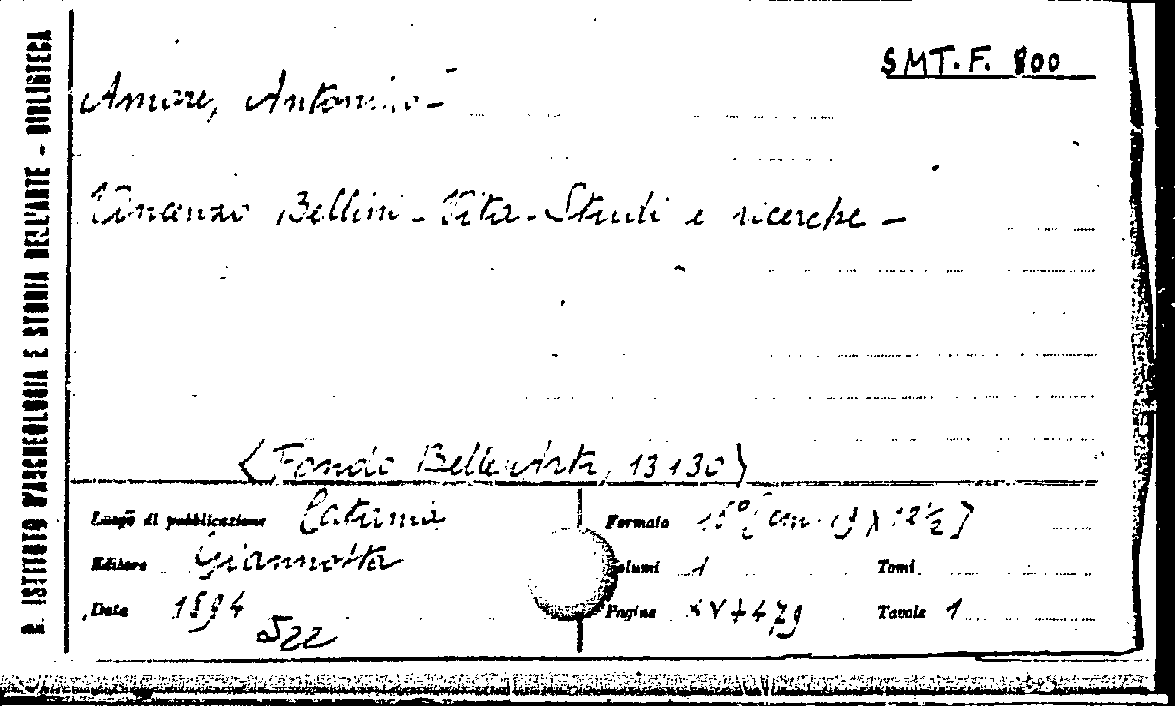 SMT. F. 800
Amore, Antonino -
Vincenzo Bellini - Vita - Studi e ricerche -
<Fondo Belle Arti, 13130>
Luogo di pubblicazione Catania
Formato 16° [cm. 19 x 12½]
Editore Giannotta
Volumi 1 Tomi
Data 1894
Pagine XV + 479 Tavole 1
522
R. ISTITUTO D'ARCHEOLOGIA E STORIA DELL'ARTE - BIBLIOTECA